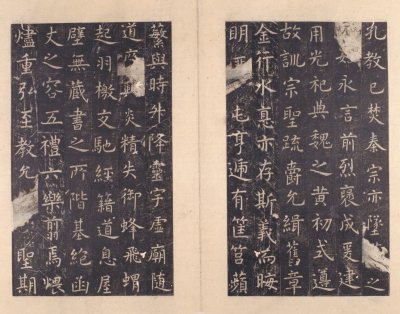 孔教已焚秦宗亦墜之
始永言前烈褒成爰建
用光祀典魏之黃初式遵
故訓宗聖疏爵允緝舊章
金行水悳亦存斯義而晦
明屯亨遞有筐筥蘋
蘩與時升降靈宇虛廟隨
道廢興炎精失御蜂飛蝟
起羽檄交馳經籍道息屋
壁無藏書之所階基絕函
丈之容五禮六樂翦焉煨
燼重弘至教允聖期